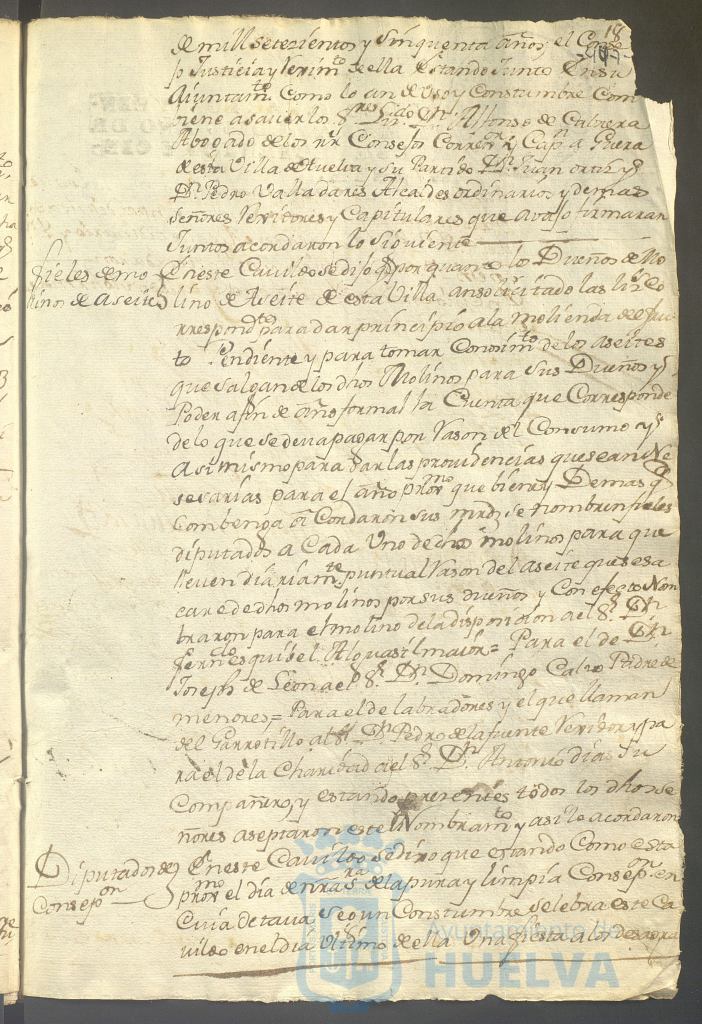 18
de mill setezientos y sinquenta años, el Consº
p Justicia y Rexim.to de ella estando Junto en su
Aiuntam.to Como lo an de Vso y Constumbre Com
biene a sauer los S.res Lizdo. Dn. Alfonso de Cabrera
Abogado de los Rs. Consejos Correx.or y Cap.n a Guera
de esta Villa de Huelva y su Partido Dn. Juan ortiz y
Dn. Pedro Valladares Alcaldes ordinarios y demas
Señores Rexidores y Capitulares que avajo firmaran
Juntos acordaron lo Siguiente
fieles de mo
linos de Aseite
En este Cauildo se dijo q por quanto los Dueños de Mo
lino de Aseite de esta Villa an solicitado las liz.s Co
rrespond.tes para dar principio a la molienda de fru
to Pendiente y para tomar Conosim.to de los aseites
que salgan de los dhos Molinos para sus Dueños y
Poder afin de año formal la Cuenta que Corresponde
de lo que se deua pagar por Rason del Consumo y
Asimismo para dar las prouidencias que sean Ne
sesarias para el año prox.mo que biene y Demas q
Combenga a Condaron sus mrds se nombren fieles
diputados a Cada Uno de dhos molinos para que
lleuen diariam.te puntual Rason del aseite que se sa
care de dhos molinos por sus dueños y Con efecto Nom
braron para el molino de la disposicion al S.r Dn.
Fern.do esquibel Alguasil maior = Para el de Dn.
Joseph de Leon al S.r Dn. Domingo Calvo Padre de
menores = Para el de labradores y el que llaman
del Garrotillo al S.r Dn. Pedro de la fuente Rexidor y pa
ra el de la Charidad al S.r Dn. Antonio dias su
Compañero, y estando presentes todos los dhos se
ñores aseptaron este Nombram.to y asi lo acordaron
Diputados de
Consep.on
En este Cauildo se dixo que estando Como esta
prox.mo el dia de nra S.ra de la pura y limpia Consep.on en
Cuia octaua segun Constumbre selebra este Ca
uildo en el dia Vltimo de ella Una fiesta a
Ayuntamiento de
HUELVA